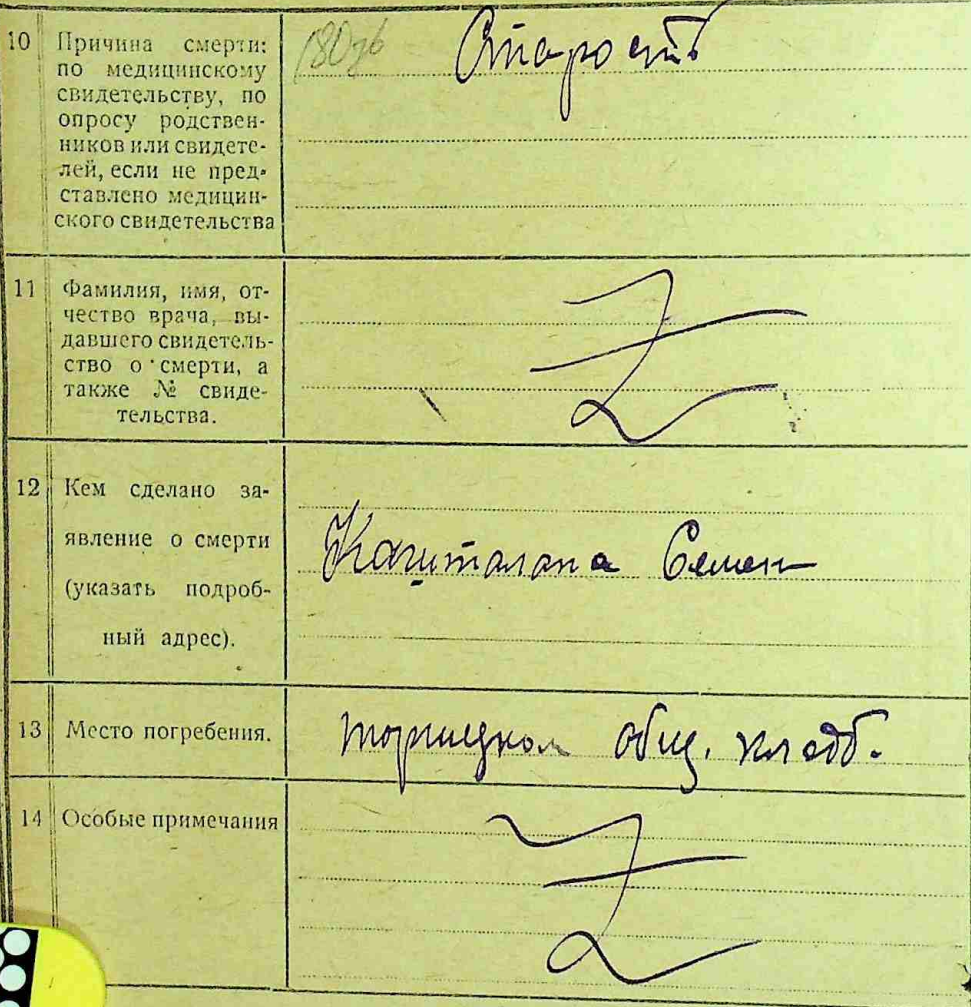 10 Причина смерти:
по медицинскому
свидетельству, по
опросу родствен-
ников или свидете-
лей, если не пред-
ставлено медицин-
ского свидетельства
Старость
11 Фамилия, имя, от-
чество врача, вы-
давшего свидетель-
ство о смерти, а
также № свиде-
тельства.
12 Кем сделано за-
явление о смерти
(указать подроб-
ный адрес).
Семен
13 Место погребения.
общ. кладб.
14 Особые примечания